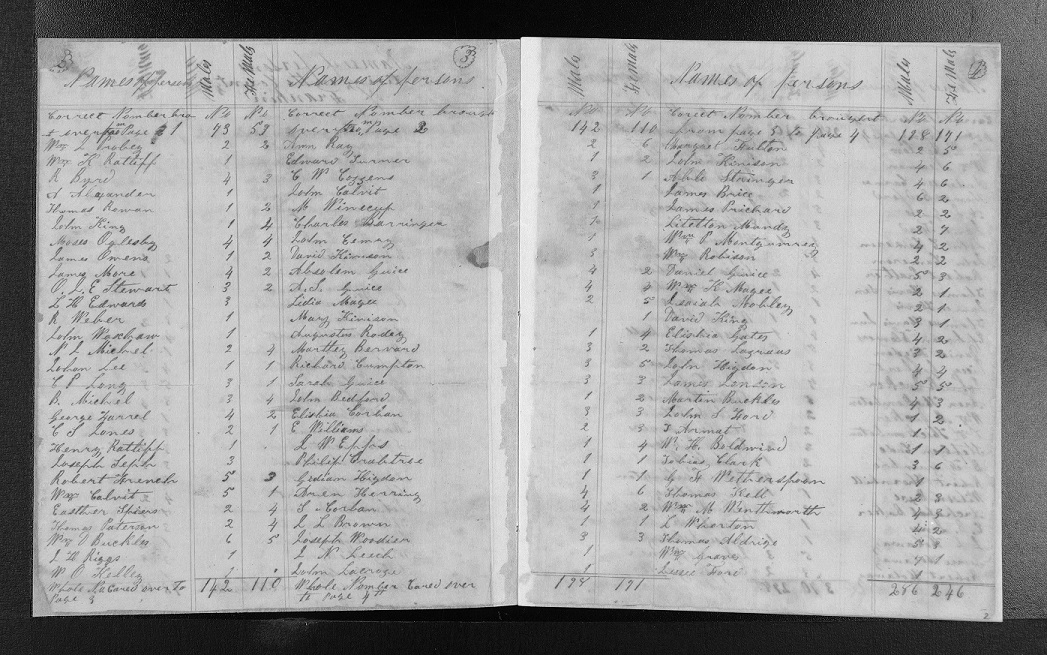 3
Names of person Males Fe Males
Correct Nomber bro No No
t over from Page 1 93 53
Wm L Sobey 2 2
Wm K Ratliff 1
R Byrd 4 3
A Alexander 1
Thomas Rowan 1 2
John King 1 4
Moses Oglesby 4 4
James Owens 1 2
James More 4 2
O. L. E Stewart 3 2
L H Edwards 3
R Weber 1
John Waxhaw 1
N L Michel 2 4
Johan Lee 1 1
C P Long 3 1
B. Michel 3 4
George Harrel 4 2
C S Jones 2 1
Henry Ratliff 1
Joseph 3
Robert French 5 3
Wm Calvit 5 1
Easther Spiers 2 4
Thomas Paterson 2 4
Wm Buckles 6 5
L H Riggs 1
W O Kelley 1
Whole No Cared over to 142 110
Page 3
3
Names of persons Males Females
Correct Nomber brought No No
over from Page 2 142 110
Ann Ray 2 6
Edward Turner 1 2
C W Coggens 3 1
John Calvit 1
M Winecup 1
Charles Barringer 1
John 1
David Kinison 3
Absolem Guice 4 2
A. S. Guice 4 4
Lidia Magee 2 5
Mary Kinison 1
Augustus Rodey 1 4
Bernard 3 2
Richard Cumpton 3 5
Sarah Guice 3 3
John Bedford 1 2
Elishia Corban 3 3
E Williams 2 3
L W Epps 1 4
Philip Crabtree 1 1
Gediam Higdon 1 1
Brien Herring 4 6
S Corban 4 2
L L Brown 1 1
Joseph Woodier 3 3
L N Leech 1
John Lacroze 1
Whole Nomber Cared over 198 191
to Page 4th
4
Names of persons Males Fe Males
Corect Nomber brought No No
from page 3 to Page 4 198 191
Margaret Fulton 2 5
John Kinison 4 6
Able Stringer 4 6
James Brice 6 2
James Prichard 2 2
Litelton Mundy 2 7
Wm P Montgumrey 4 2
Wm Robison 2 2
Daniel Guice 5 3
Wm K Magee 2 1
Isaiah Mobley 2 1
David King 3 1
Elishia Gates 4 2
Thomas 3 2
John Higdon 4 4
James London 5 5
Martin Buckles 1 3
John S Ford 4 2
T Armat
W. H. Boldwind 1 1
Tobias Clark 3 6
G F Wetherspoon 1
Thomas Holt 2 3
Wm M Wenthworth 4 3
L Whorton 4 2
Thomas Aldrige 5 3
Wm Grave 4 1
Jessie Ford
286 246
2